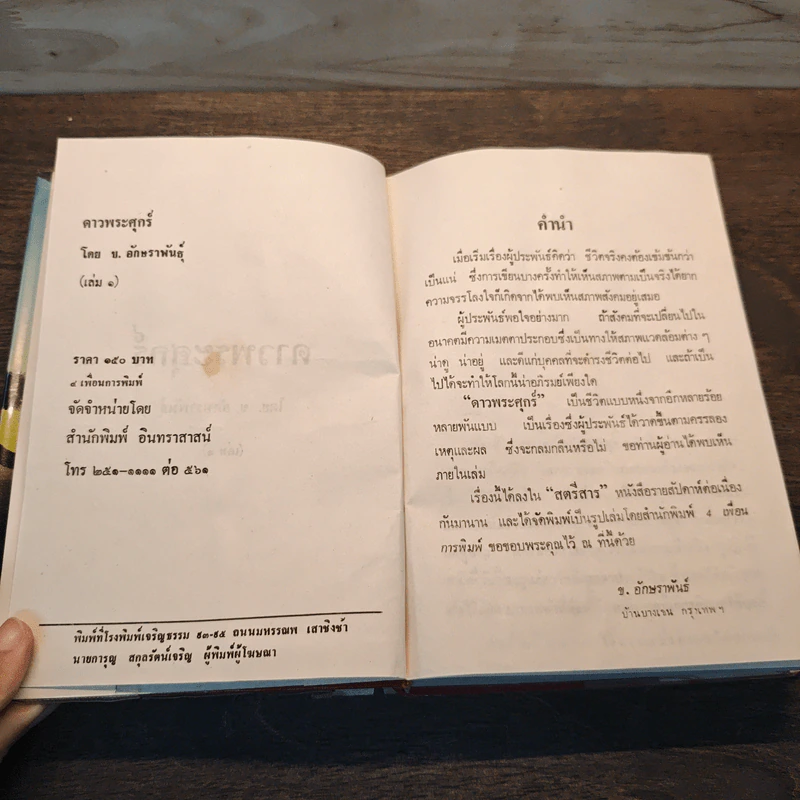 ดาวพระศุกร์
โดย ข. อักษราพันธุ์
(เล่ม ๑)
ราคา ๑๕๐ บาท
๔ เพื่อนการพิมพ์
จัดจำหน่ายโดย
สำนักพิมพ์ อินทราสาสน์
โทร ๒๕๑-๑๑๑๑ ต่อ ๕๖๑
พิมพ์ที่โรงพิมพ์เจริญธรรม ๙๓-๙๕ ถนนมหรรณพ เสาชิงช้า
นายการุญ สกุลรัตน์เจริญ ผู้พิมพ์ผู้โฆษณา
คำนำ
เมื่อเริ่มเรื่องผู้ประพันธ์คิดว่า ชีวิตจริงคงต้องเข้มข้นกว่า
เป็นแน่ ซึ่งการเขียนบางครั้งทำให้เห็นสภาพตามเป็นจริงได้ยาก
ความจรรโลงใจก็เกิดจากได้พบเห็นสภาพสังคมอยู่เสมอ
ผู้ประพันธ์พอใจอย่างมาก ถ้าสังคมที่จะเปลี่ยนไปใน
อนาคตมีความเมตตาประกอบซึ่งเป็นทางให้สภาพแวดล้อมต่าง ๆ
น่าดู น่าอยู่ และดีแก่บุคคลที่จะดำรงชีวิตต่อไป และถ้าเป็น
ไปได้จะทำให้โลกนี้น่าอภิรมย์เพียงใด
“ดาวพระศุกร์” เป็นชีวิตแบบหนึ่งจากอีกหลายร้อย
หลายพันแบบ เป็นเรื่องซึ่งผู้ประพันธ์ได้วาดขึ้นตามครรลอง
เหตุและผล ซึ่งจะกลมกลืนหรือไม่ ขอท่านผู้อ่านได้พบเห็น
ภายในเล่ม
เรื่องนี้ได้ลงใน “สตรีสาร” หนังสือรายสัปดาห์ต่อเนื่อง
กันมานาน และได้จัดพิมพ์เป็นรูปเล่มโดยสำนักพิมพ์ 4 เพื่อน
การพิมพ์ ขอขอบพระคุณไว้ ณ ที่นี้ด้วย
ข. อักษราพันธ์
บ้านบางเขน กรุงเทพฯ